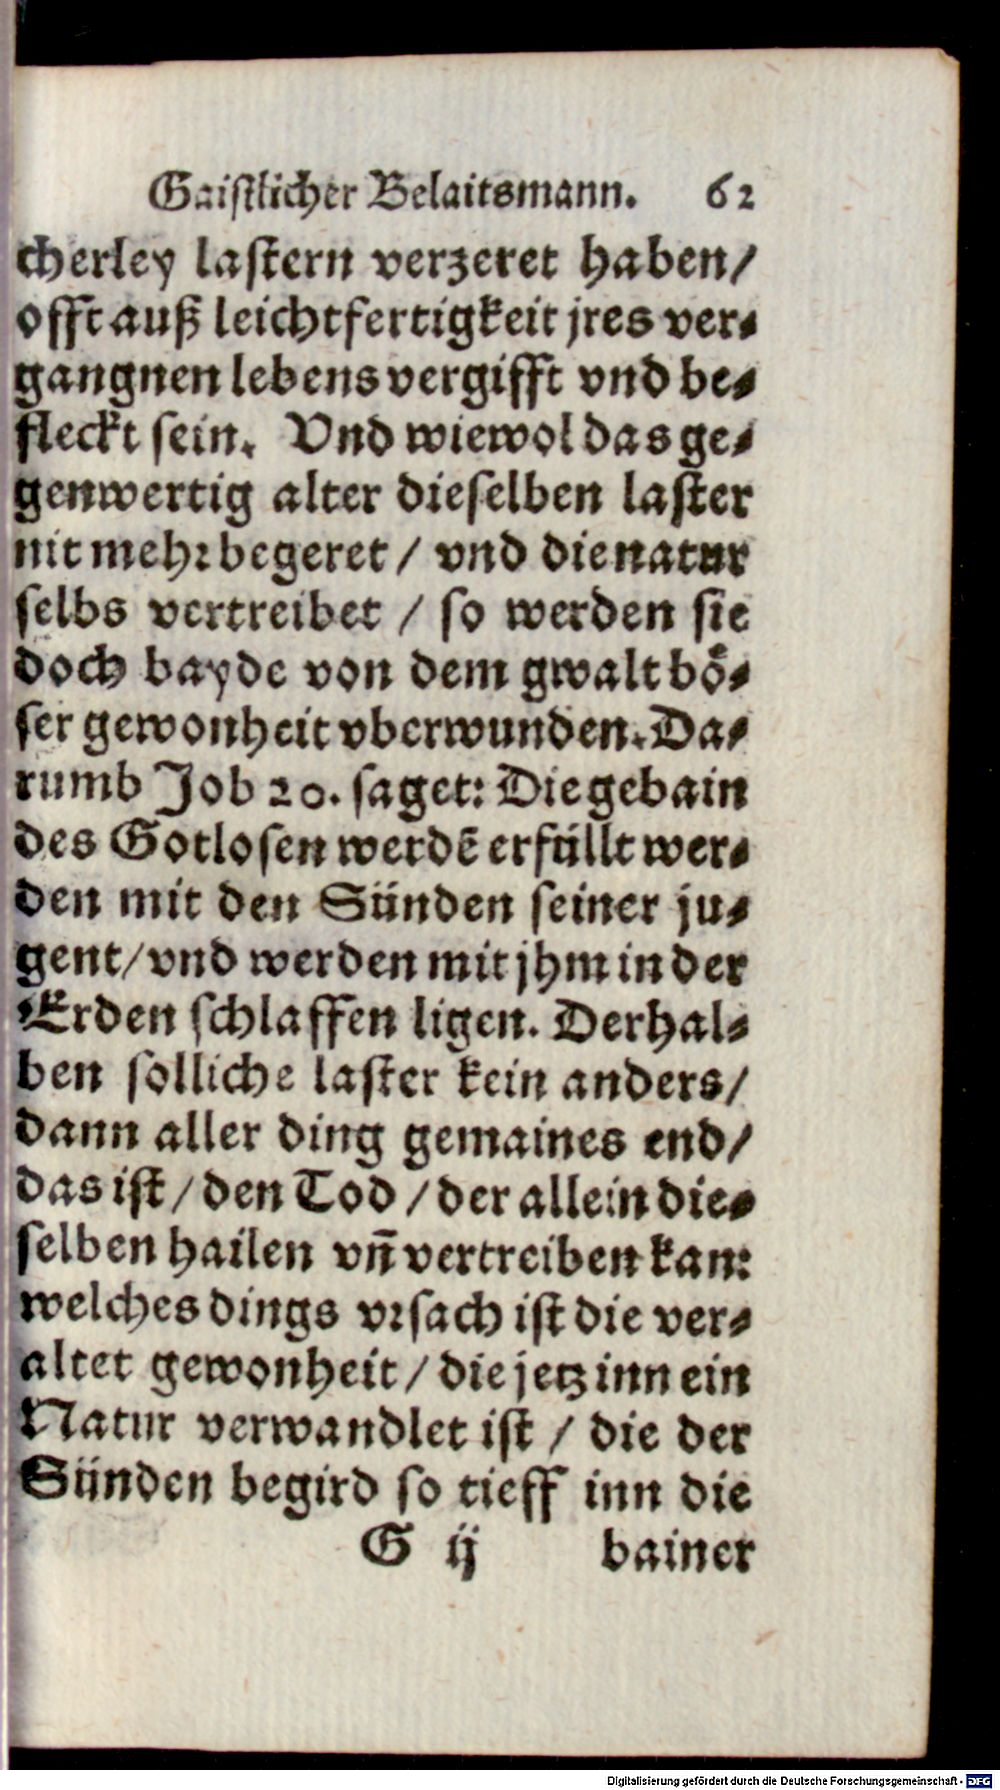 Gaistlicher Belaitsmann. 62
cherley lastern verzeret haben/
offt auß leichtfertigkeit jres ver⸗
gangnen lebens vergifft vnd be⸗
fleckt sein. Vnd wiewol das ge⸗
genwertig alter dieselben laster
nit mehr begeret / vnd die natur
selbs vertreibet / so werden sie
doch bayde von dem gwalt boͤ⸗
ser gewonheit vberwunden. Da⸗
rumb Job 20. saget: Die gebain
des Gotlosen werdē erfüllt wer⸗
den mit den Sünden seiner ju⸗
gent/ vnd werden mit jhm in der
Erden schlaffen ligen. Derhal⸗
ben solliche laster kein anders/
dann aller ding gemaines end/
das ist / den Tod / der allein die⸗
selben hailen vn̄ vertreiben kan:
welches dings vrsach ist die ver⸗
altet gewonheit / die jetz inn ein
Natur verwandlet ist / die der
Sünden begird so tieff inn die
G ij bainer
Digitalisierung gefördert durch die Deutsche Forschungsgemeinschaft - DFG